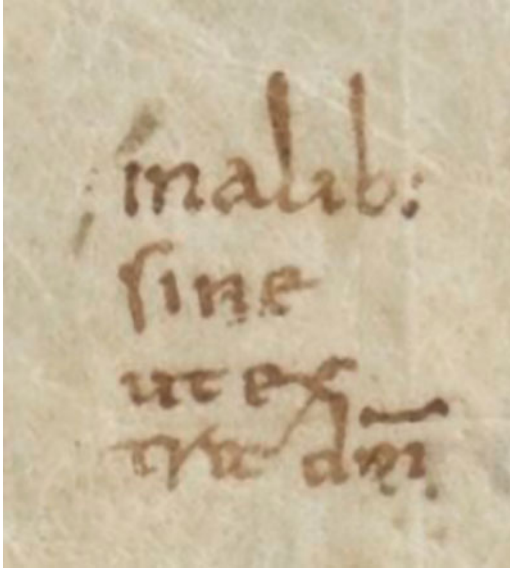 inalib:
sine
ut ex
tra dn̄i